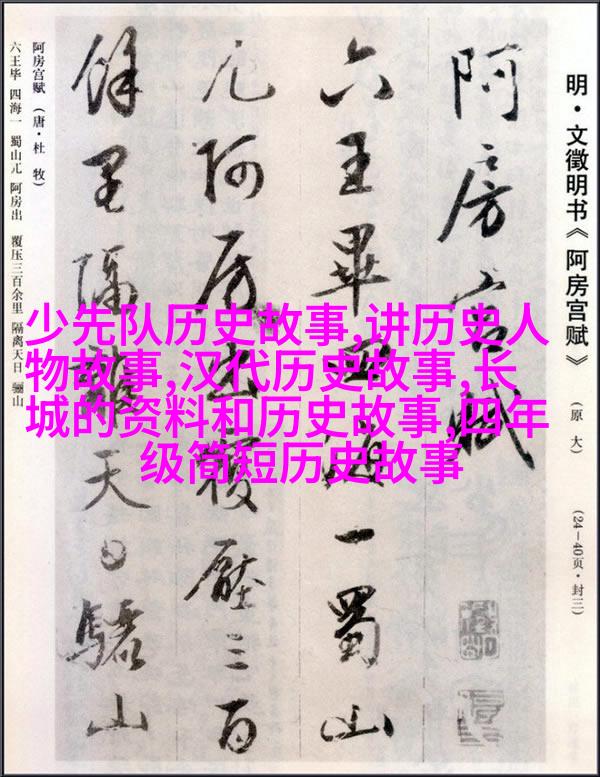 明·文徵明书《阿房宫赋》
（原大）
（24—40页·封三）
阿房宮賦
六王畢四海一蜀山
兀阿房出覆壓三百
餘里隔離天日驪山
阿房宫赋（唐·杜 牧）
六王毕 四海一 蜀山兀 阿房出 覆压三百余里 隔离天日 骊山
少先队历史故事,讲历史人
物故事,汉代历史故事,长
城的资料和历史故事,四年
级简短历史故事